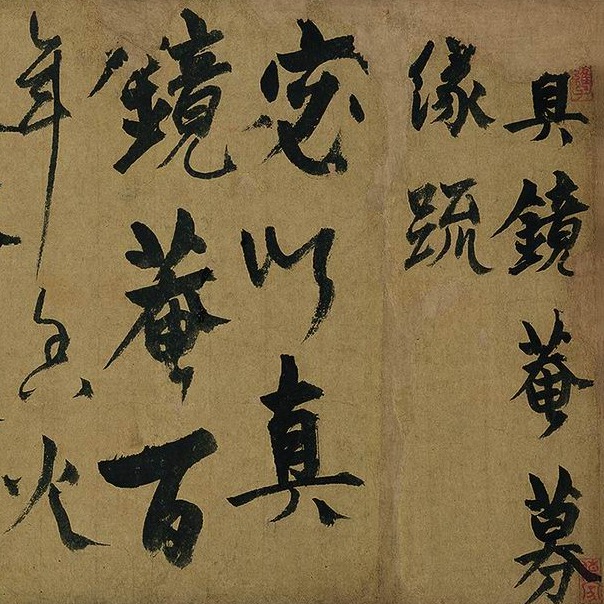 真鏡菴募
緣疏
窃以真
鏡菴百
年香火